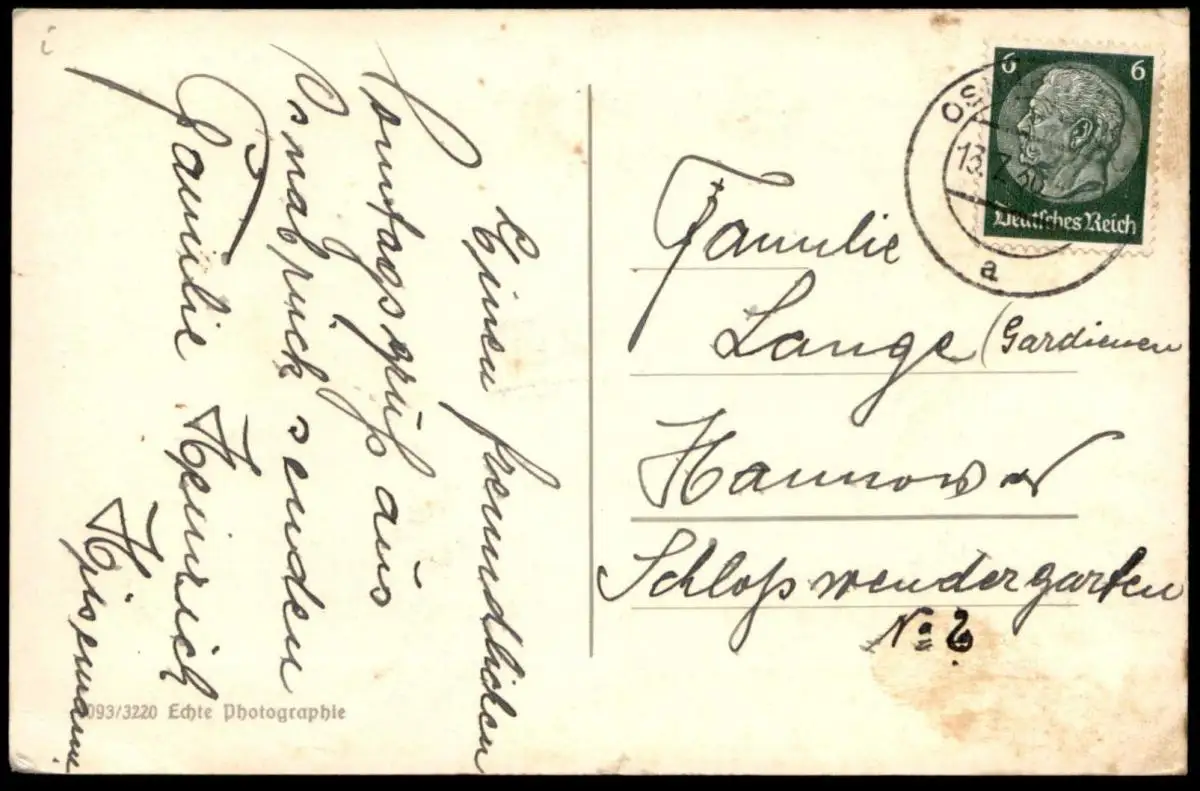 Einen freundlichen
Sonntagsgruß aus
Osnabrück senden
Familie Heinrich
6 6
Deutsches Reich
OS
13.7.
a
Familie
Lange (Gardienen
Hannover
Schloßwendergarten
No
093/3220 Echte Photographie